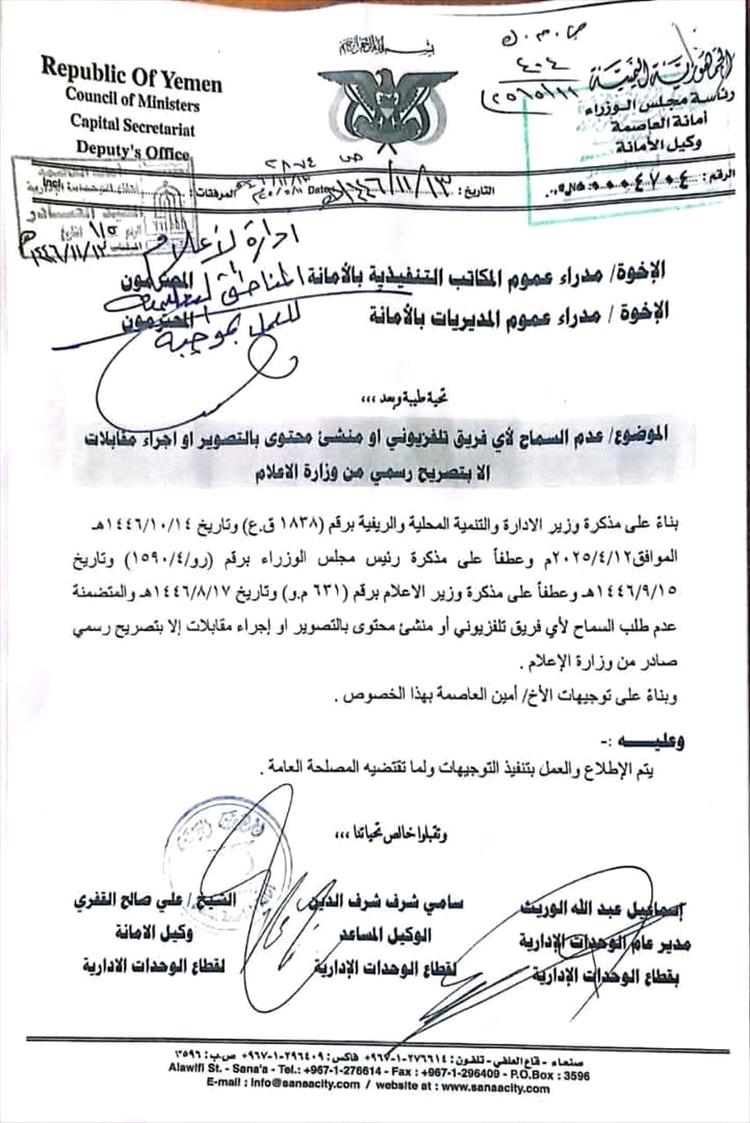 بسم الله الرحمن الرحيم
Republic Of Yemen
Council of Ministers
Capital Secretariat
Deputy's Office
الجمهورية اليمنية
رئاسة مجلس الوزراء
أمانة العاصمة
وكيل الأمانة
٤٠٤
الرقم:
٤٧٠٤
التاريخ:
١٤٤٦/١١/١٣
Date
المرفقات:
١٤٤٦/١١/١٣هـ
ادارة الأعلام
المناطق التعليمية
للعمل بموجبه
الإخوة/ مدراء عموم المكاتب التنفيذية بالأمانة المحترمون
الإخوة / مدراء عموم المديريات بالأمانة المحترمون
تحية طيبة وبعد ،،،
الموضوع/ عدم السماح لأي فريق تلفزيوني او منشئ محتوى بالتصوير او اجراء مقابلات
الا بتصريح رسمي من وزارة الاعلام
بناءً على مذكرة وزير الادارة والتنمية المحلية والريفية برقم (١٨٣٨ ق.ع) وتاريخ ١٤٤٦/١٠/١٤هـ
الموافق٢٠٢٥/٤/١٢م وعطفاً على مذكرة رئيس مجلس الوزراء برقم (رو/١٥٩٠/٤) وتاريخ
١٤٤٦/٩/١٥هـ وعطفاً على مذكرة وزير الاعلام برقم (٦٣١ م.و) وتاريخ ١٤٤٦/٨/١٧هـ والمتضمنة
عدم طلب السماح لأي فريق تلفزيوني أو منشئ محتوى بالتصوير او إجراء مقابلات إلا بتصريح رسمي
صادر من وزارة الإعلام .
وبناءً على توجيهات الأخ/ أمين العاصمة بهذا الخصوص .
وعليـــه :-
يتم الإطلاع والعمل بتنفيذ التوجيهات ولما تقتضيه المصلحة العامة .
وتقبلوا خالص تحياتنا ،،،
إسماعيل عبد الله الوريث
مدير عام الوحدات الإدارية
بقطاع الوحدات الإدارية
سامي شرف شرف الدين
الوكيل المساعد
لقطاع الوحدات الإدارية
الشيخ/ علي صالح القفري
وكيل الامانة
لقطاع الوحدات الادارية
صنعاء - قاع العلفي - تلفون: ٢٧٦٦١٤-١-٩٦٧+ فاكس: ٢٩٦٤٠٩-١-٩٦٧+ ص.ب: ٣٥٩٦
Alawifi St. - Sana'a - Tel.: +967-1-276614 - Fax : +967-1-296409 - P.O.Box : 3596
E-mail : info@sanaacity.com / website at : www.sanaacity.com